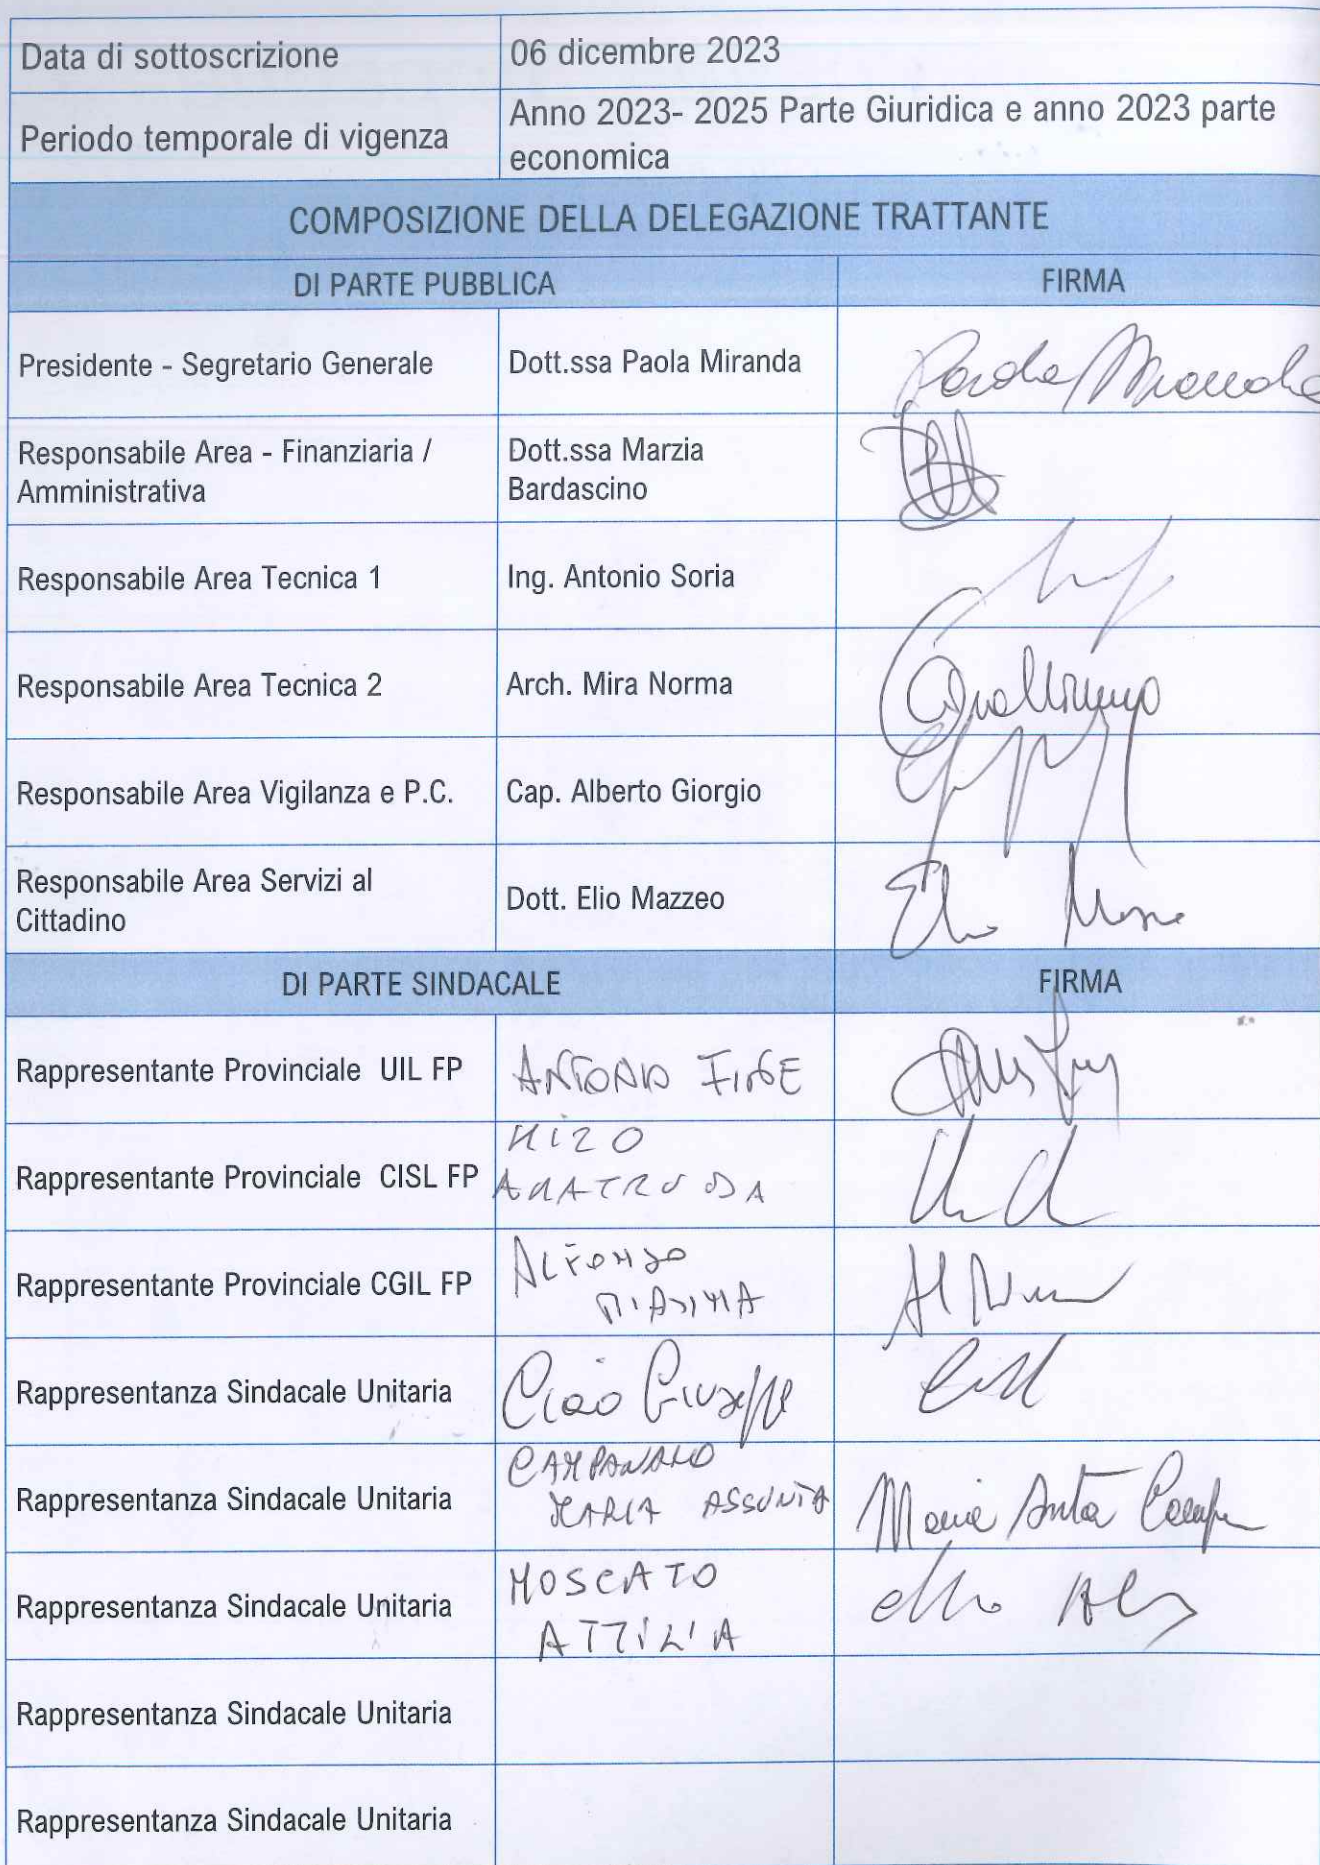 Data di sottoscrizione
06 dicembre 2023
Periodo temporale di vigenza
Anno 2023- 2025 Parte Giuridica e anno 2023 parte
economica
COMPOSIZIONE DELLA DELEGAZIONE TRATTANTE
DI PARTE PUBBLICA
FIRMA
Presidente - Segretario Generale
Dott.ssa Paola Miranda
Paola Miranda
Responsabile Area - Finanziaria /
Amministrativa
Dott.ssa Marzia
Bardascino
Responsabile Area Tecnica 1
Ing. Antonio Soria
Responsabile Area Tecnica 2
Arch. Mira Norma
Responsabile Area Vigilanza e P.C.
Cap. Alberto Giorgio
Responsabile Area Servizi al
Cittadino
Dott. Elio Mazzeo
DI PARTE SINDACALE
FIRMA
Rappresentante Provinciale UIL FP
ANTONIO
Rappresentante Provinciale CISL FP
Rappresentante Provinciale CGIL FP
ALFONSO
Rappresentanza Sindacale Unitaria
Ciao Giuseppe
Rappresentanza Sindacale Unitaria
CAMPANARO
MARIA ASSUNTA
Rappresentanza Sindacale Unitaria
MOSCATO
ATTILIA
Rappresentanza Sindacale Unitaria
Rappresentanza Sindacale Unitaria